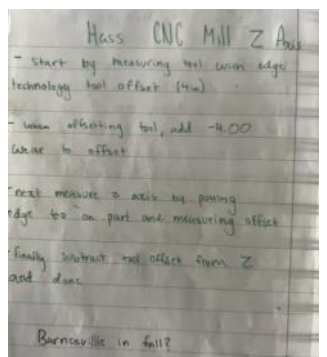 Hass CNC Mill Z Axis
- start by measuring tool with edge
technology tool offset (4in)
- when offsetting tool, add -4.00
wear to offset
- next measure z axis by putting
edge to on part and measuring offset
- finally subtract tool offset from Z
and done
Barnesville in fall?